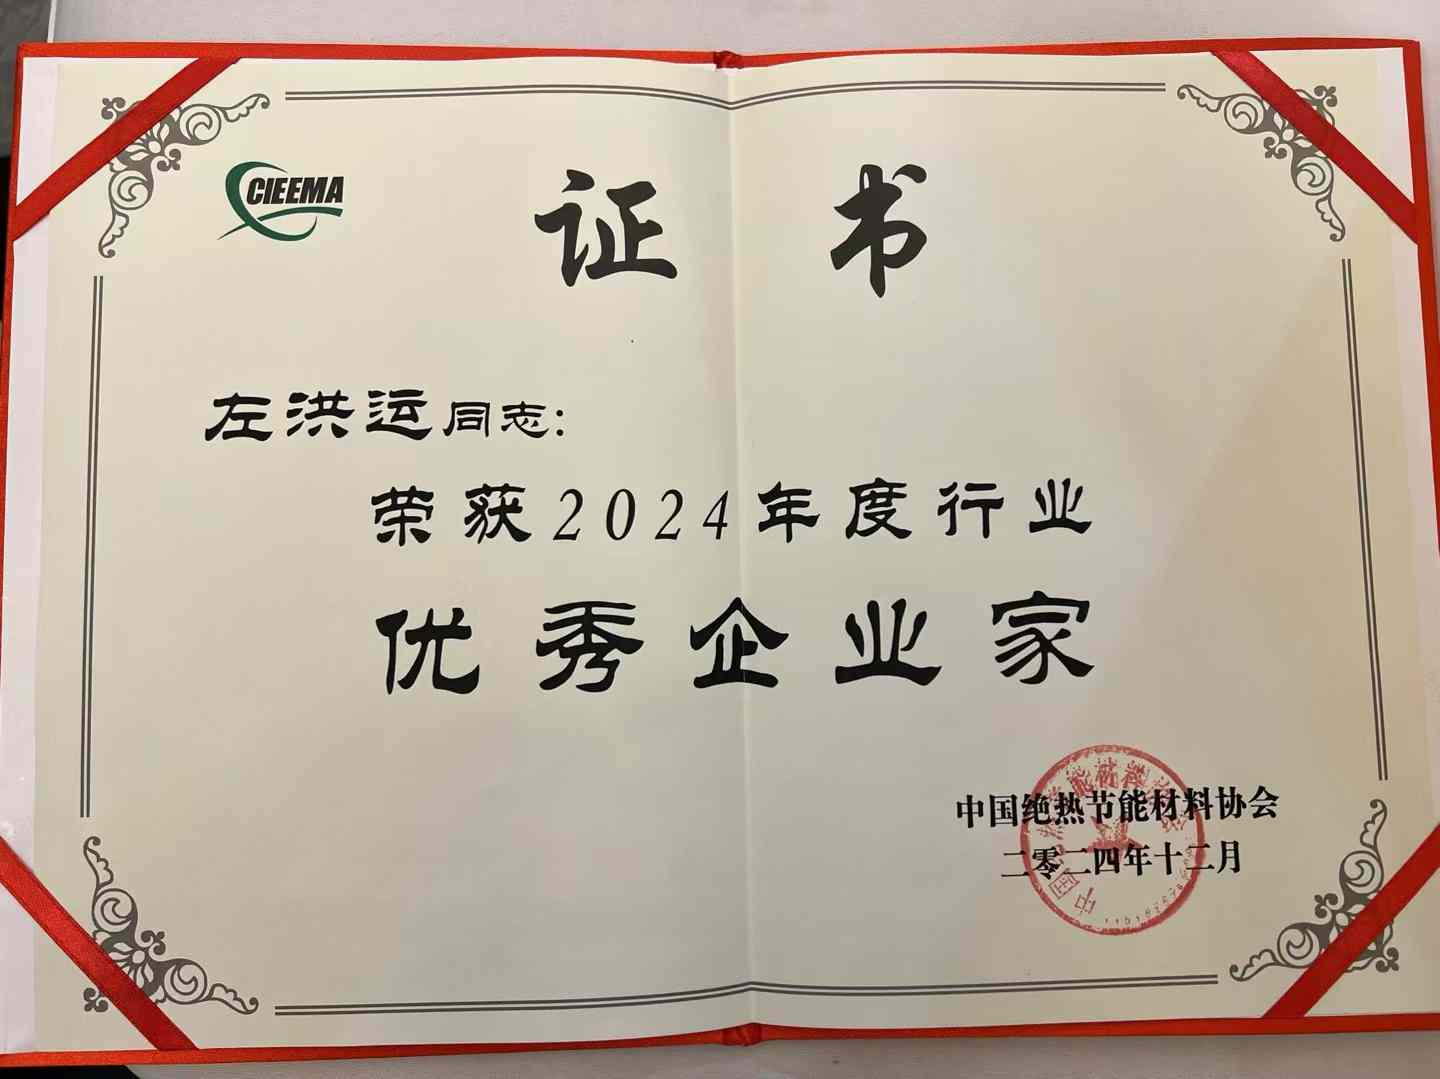 CIEEMA
证书
左洪运同志：
荣获2024年度行业
优秀企业家
中国绝热节能材料协会
二零二四年十二月